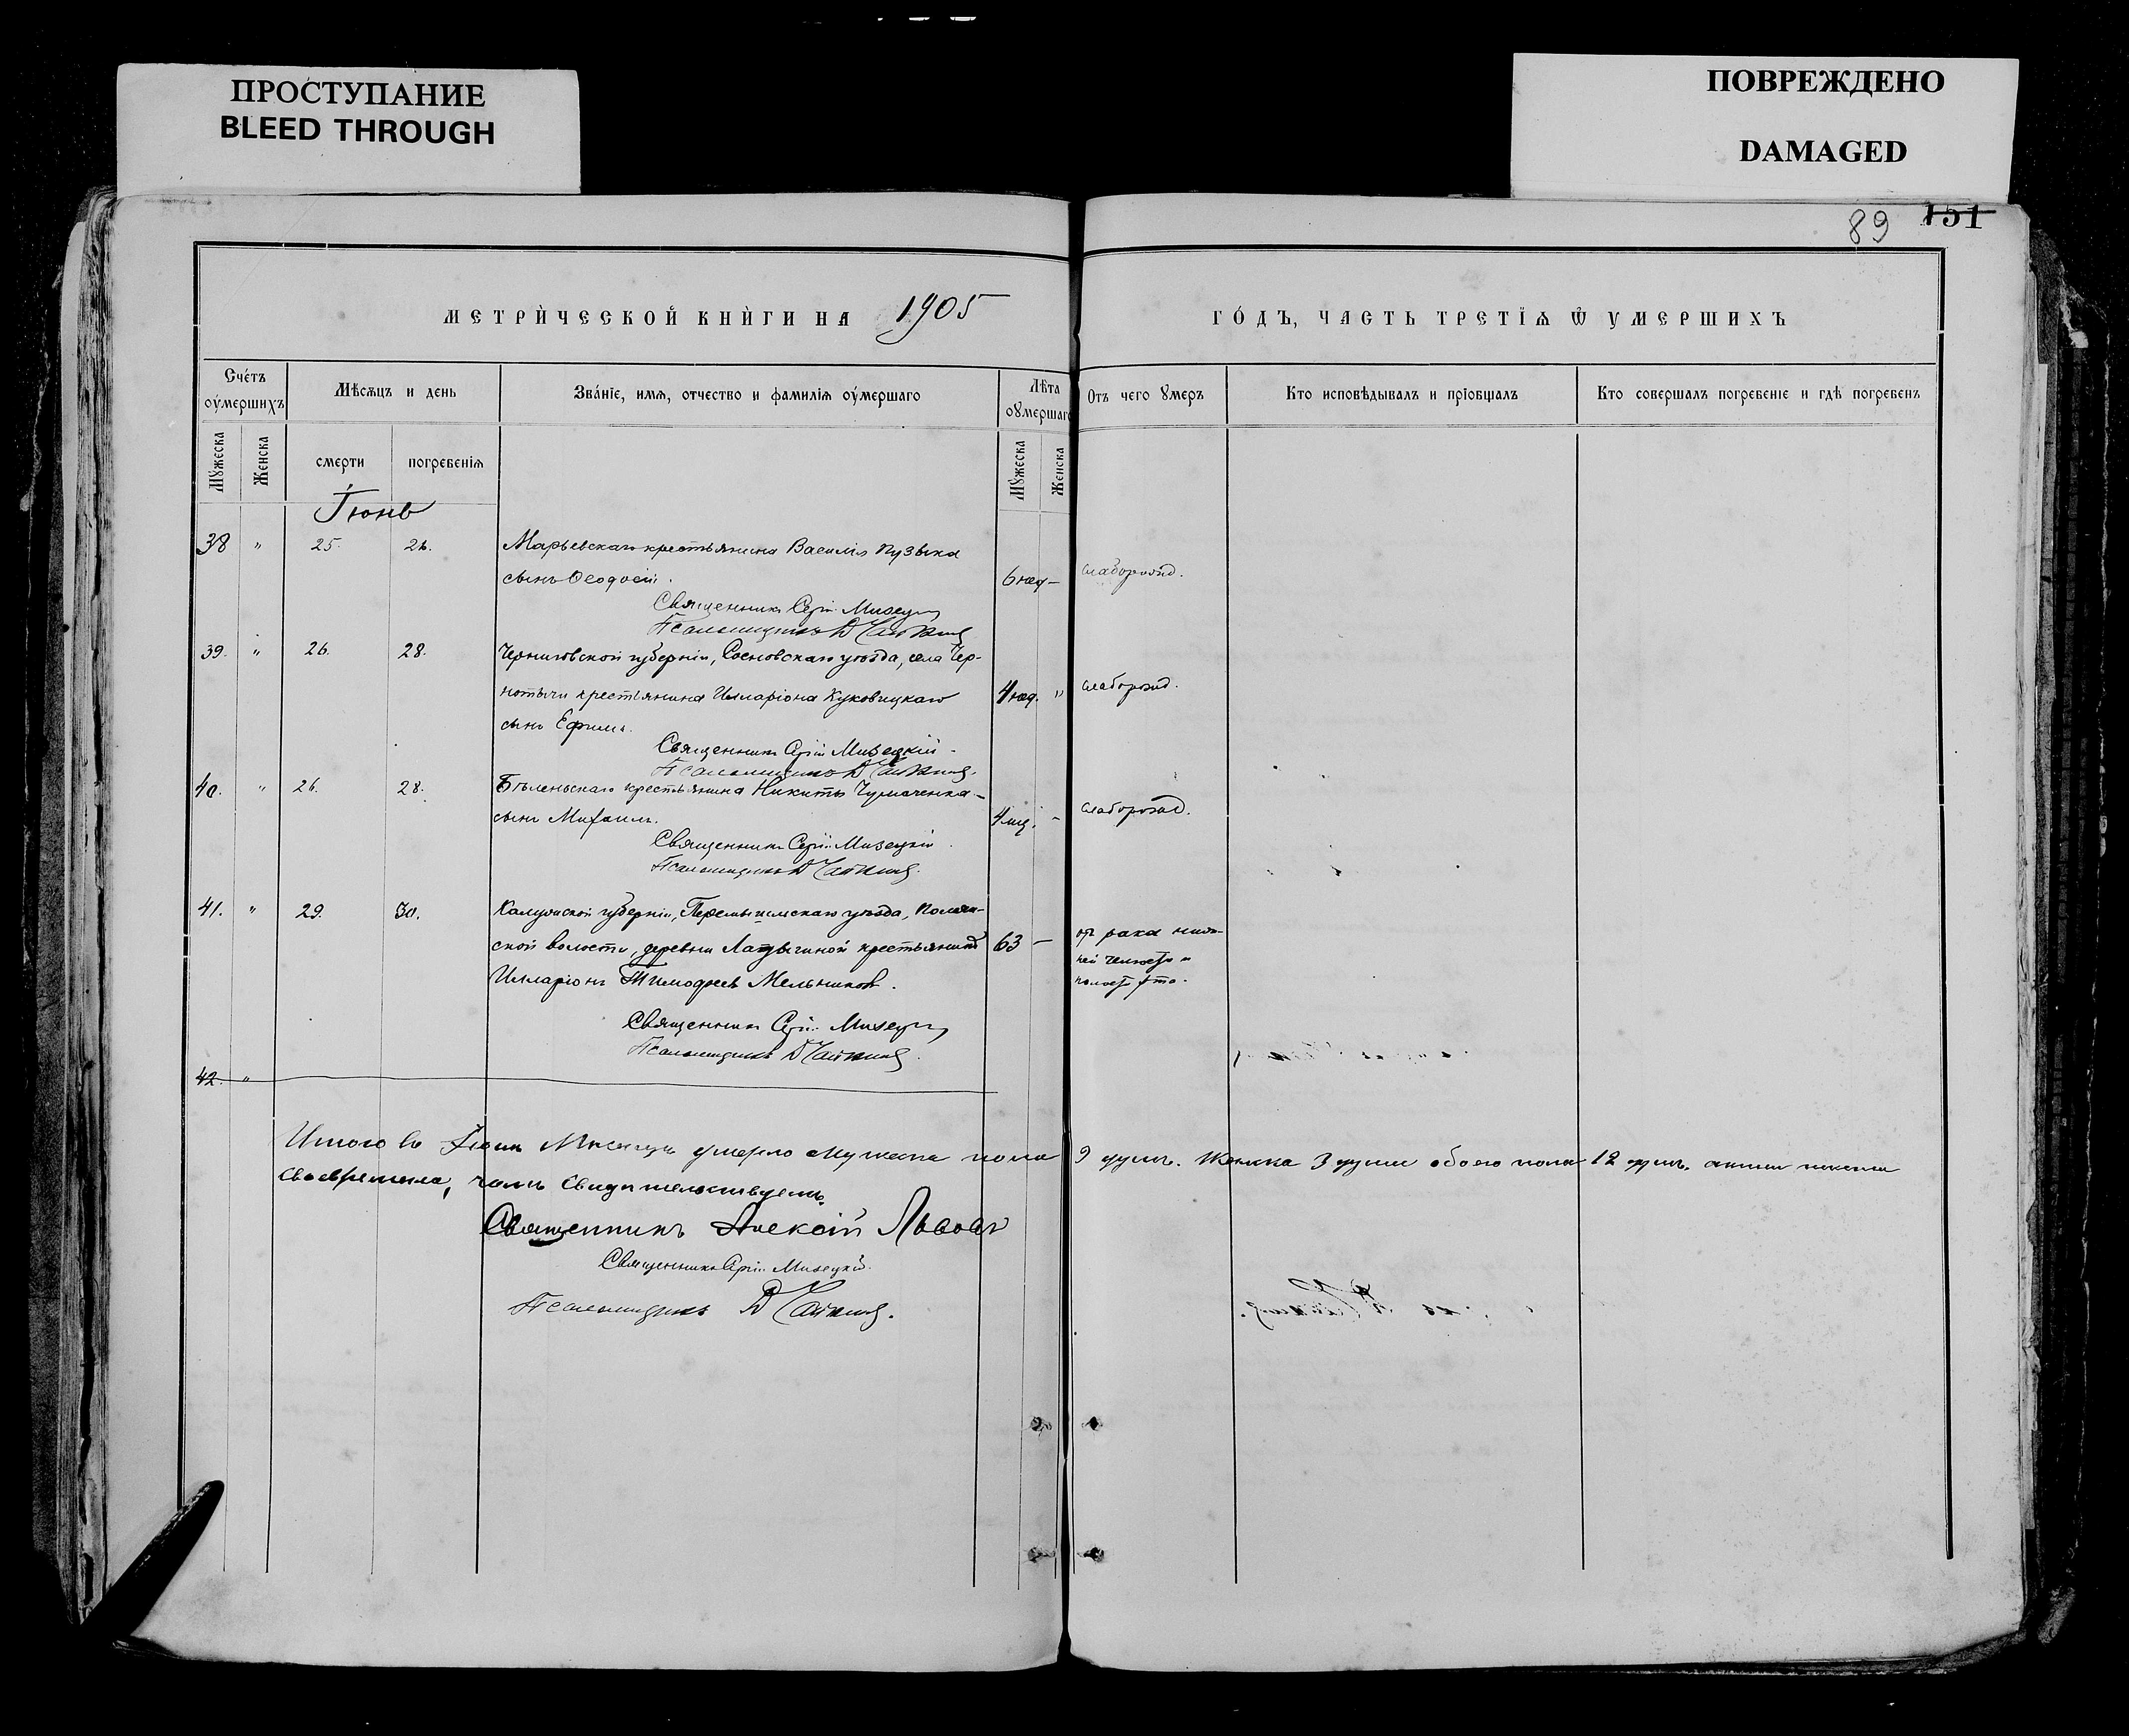 ПРОСТУПАНИЕ
BLEED THROUGH
ПОВРЕЖДЕНО
DAMAGED
89 151
МЕТРИ́ЧЕСКОЙ КНИ́ГИ НА 1905
ГО́ДЪ, ЧАСТЬ ТРЕТІѦ Ѿ УМЕРШИХЪ
Сче́тъ оу́мершихъ
Мѣсѧцъ и день
Зва́ніе, имѧ, отчество и фамиліѧ оу́мершаго
Лѣта оумершаго
Отъ чего умеръ
Кто исповѣдывалъ и пріобщалъ
Кто совершалъ погребеніе и гдѣ погребенъ
Мужеска
Женска
смерти
погребеніѧ
Мужеска
Женска
Іюнь
38 " 25. 26. Марьевскаго крестьянина Василія Пузыка
сынъ Ѳеодосій. 6 нед — слаборожд.
Священникъ Сергій Мизецкій
Псаломщикъ
39. " 26. 28. Черниговской губерніи, Сосновскаго уѣзда, села Чер-
нотычи крестьянина Илларіона Куковицкаго 4 нед. " слаборожд.
сынъ Ефимъ.
Священникъ Сергій Мизецкій
Псаломщикъ
40. " 26. 28. Бѣленьскаго крестьянина Никиты Чумаченка
сынъ Михаилъ. 4 мц. - слаборожд.
Священникъ Сергій Мизецкій
Псаломщикъ
41. " 29. 30. Калужской губерніи, Перемышльскаго уѣзда,
ской волости, деревни крестьянинъ 63 — отъ рака ниж-
Илларіонъ Тимофеевъ Мельниковъ. ней челюсти и
полости рта.
Священникъ Сергій Мизецкій
Псаломщикъ
42. "
Итого въ Іюнѣ Мѣсяцѣ умерло мужеска пола 9 душъ. Женска 3 души обоего пола 12 душъ.
чемъ свидѣтельствуемъ.
Священникъ Алексій Львовъ
Священникъ Сергій Мизецкій.
Псаломщикъ